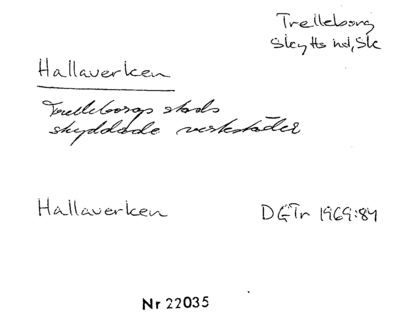 Trelleborg
Skytts hd, Sk
Hallaverken
Trelleborgs stads
skyddade verkstäder
Hallaverken
DGTr 1969:84
Nr 22035